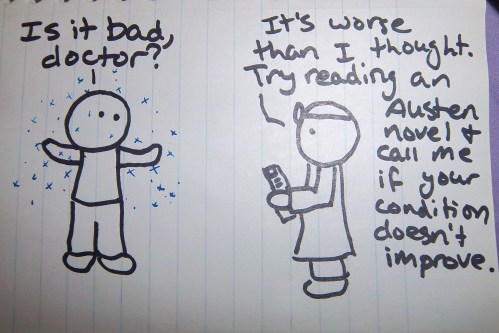 Is it bad,
doctor?
It's worse
than I thought.
Try reading an
Austen
novel &
call me
if your
condition
doesn't
improve.